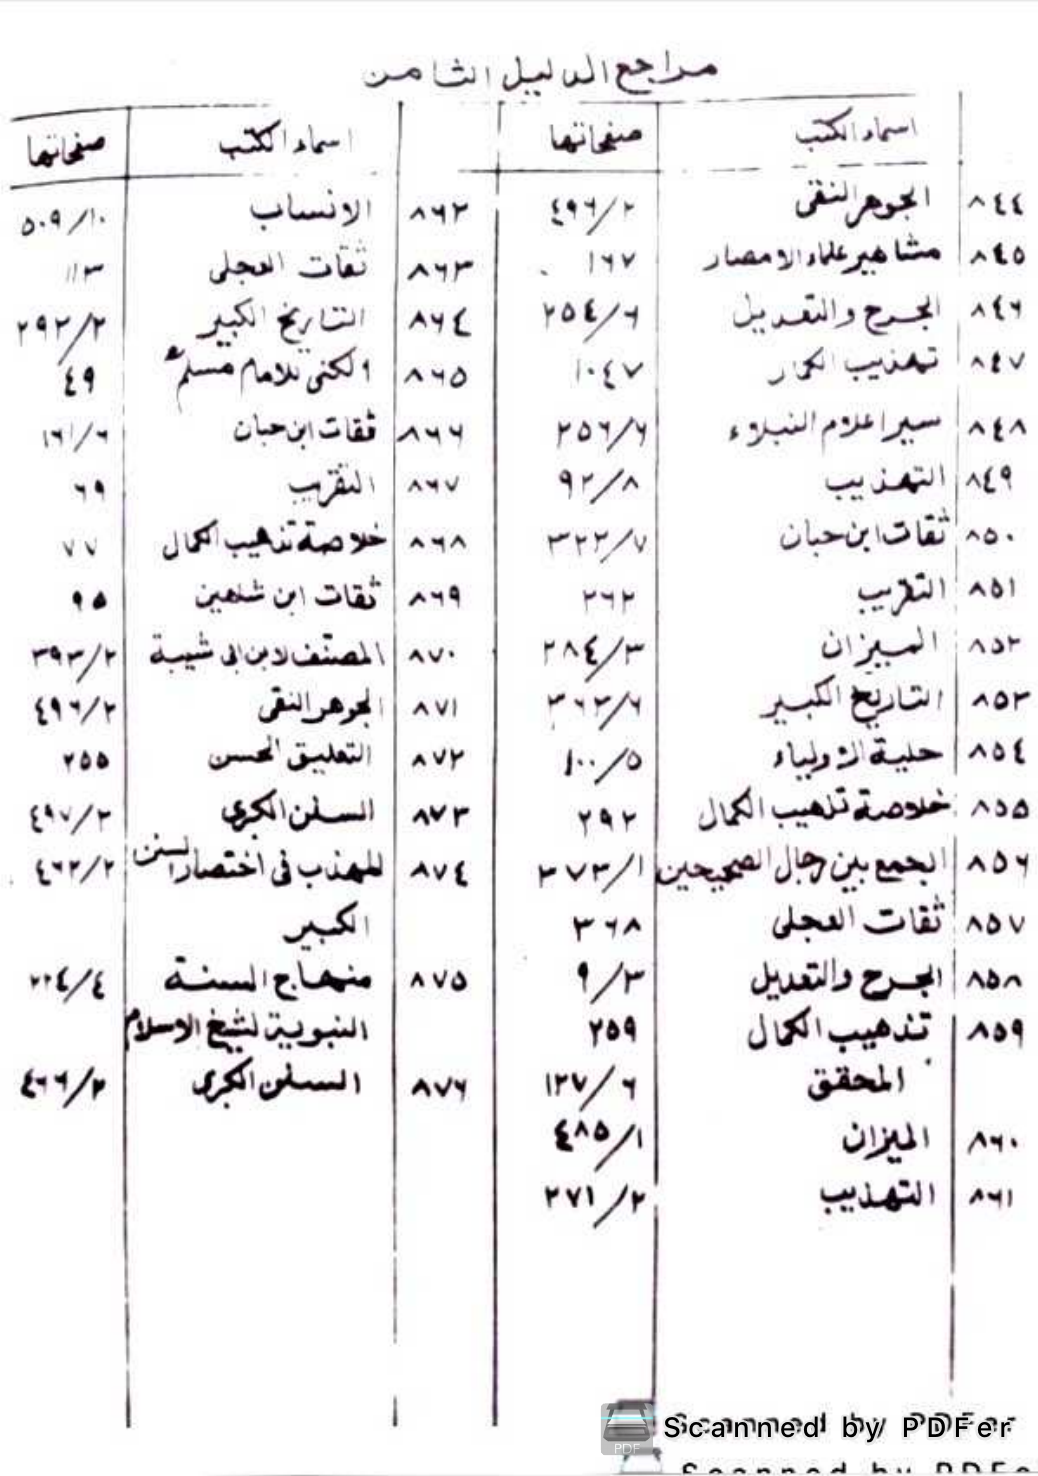 مراجع الدليل الثامن
اسماء الكتب صفحاتها
٨٤٤ الجوهر النقى ٤٩٦/٢
٨٤٥ مشاهير علماء الامصار ١٦٧
٨٤٦ الجرح والتعديل ٢٥٤/٦
٨٤٧ تهذيب الكمال ١٠٤٧
٨٤٨ سير اعلام النبلاء ٢٥٦/٦
٨٤٩ التهذيب ٩٢/٨
٨٥٠ ثقات ابن حبان ٣٢٢/٧
٨٥١ التقريب ٢٦٢
٨٥٢ الميزان ٢٨٤/٣
٨٥٣ التاريخ الكبير ٣٦٣/٦
٨٥٤ حلية الاولياء ١٠٠/٥
٨٥٥ خلاصة تذهيب الكمال ٢٩٢
٨٥٦ الجمع بين رجال الصحيحين ٣٧٣/١
٨٥٧ ثقات العجلى ٣٦٨
٨٥٨ الجرح والتعديل ٩/٣
٨٥٩ تذهيب الكمال ٢٥٩
المحقق ١٢٧/٦
٨٦٠ الميزان ٤٨٥/١
٨٦١ التهذيب ٢٧١/٢
اسماء الكتب صفحاتها
٨٦٢ الانساب ٥٠٩/١٠
٨٦٣ ثقات العجلى ١١٣
٨٦٤ التاريخ الكبير ٢٩٢/٢
٨٦٥ الكنى للامام مسلم ٤٩
٨٦٦ ثقات ابن حبان ١٦١/٦
٨٦٧ التقريب ٦٩
٨٦٨ خلاصة تذهيب الكمال ٧٧
٨٦٩ ثقات ابن شاهين ٩٥
٨٧٠ المصنف لابن ابى شيبة ٣٩٣/٢
٨٧١ الجوهر النقى ٤٩٦/٢
٨٧٢ التعليق الحسن ٢٥٥
٨٧٣ السنن الكبرى ٤٩٧/٢
٨٧٤ المهذب فى اختصار السنن ٤٦٢/٢
الكبير
٨٧٥ منهاج السنة ٢٢٤/٤
النبوية لشيخ الاسلام
٨٧٦ السنن الكبرى ٤٦٦/٢
PDF Scanned by PDFer
Scanned by PDFe